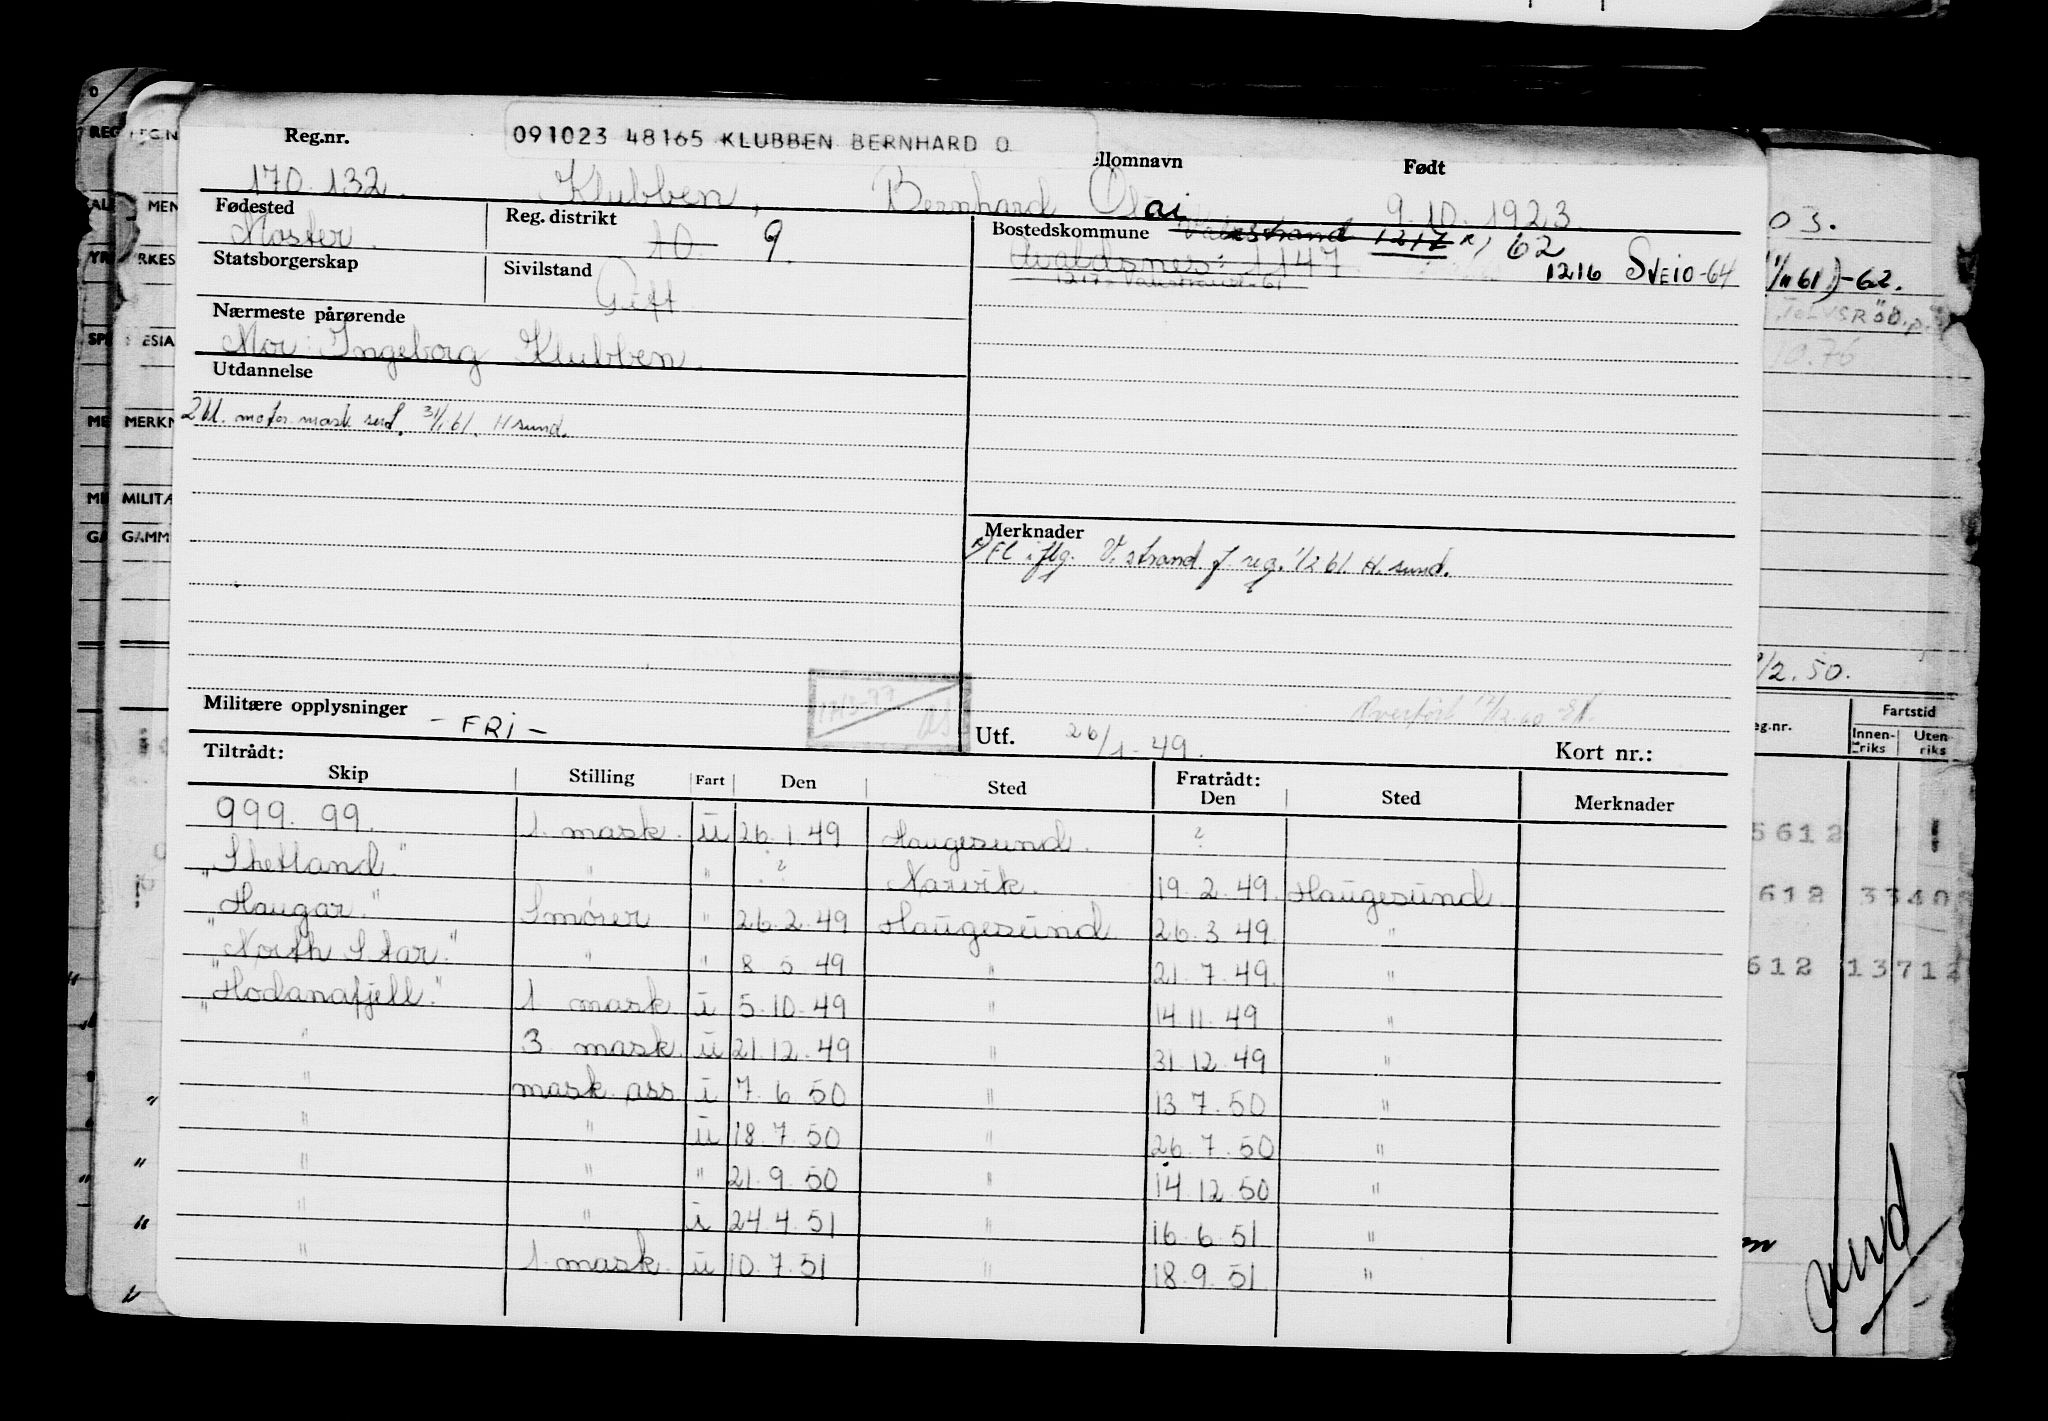 091023 48165 KLUBBEN BERNHARD O
Reg.nr. ellomnavn Født
170.132. Klubben, Bernhard Olai 9.10.1923
Fødested Reg. distrikt Bostedskommune
Moster. 10 9. Valestrand 1217 x) 62
Avaldsnes: 1147 1216 SVEIO-64
Statsborgerskap Sivilstand
Gift
Nærmeste pårørende
Mor: Ingeborg Klubben.
Utdannelse
2 kl. motor mask. sert. 31/1 61. H sund.
Merknader
x) Fl. iflg. V.strand f. reg. 1/2 61. H. sund.
Overført 17/12.60
Militære opplysninger - FRI -
Utf. 26/1-49. Kort nr.:
Tiltrådt: Fratrådt:
Skip Stilling Fart Den Sted Den Sted Merknader
999.99. 1. mask. u 26.1.49 Haugesund. ?
"Shetland" " " ? Narvik. 19.2.49. Haugesund
"Haugar" Smører " 26.2.49 Haugesund 26.3.49. "
"North Star" " " 8 5 49 " 21.7.49. "
"Hodanafjell" 1 mask. i 5.10.49 " 14.11.49 "
" 3 mask. u 21.12.49 " 31.12.49 "
" mask. ass i 7.6.50 " 13.7.50 "
" " u 18.7.50 " 26.7.50 "
" " " 21.9.50 " 14.12.50 "
" " i 24.4.51 " 16.6.51 "
" 1. mask. u 10.7.51 " 18.9.51 "
03.
-62.
10.76
/2.50.
eg.nr. Fartstid
Innenriks Utenriks
5612
612 3340
612 1371
MERKN
MILITÆ
GAMM